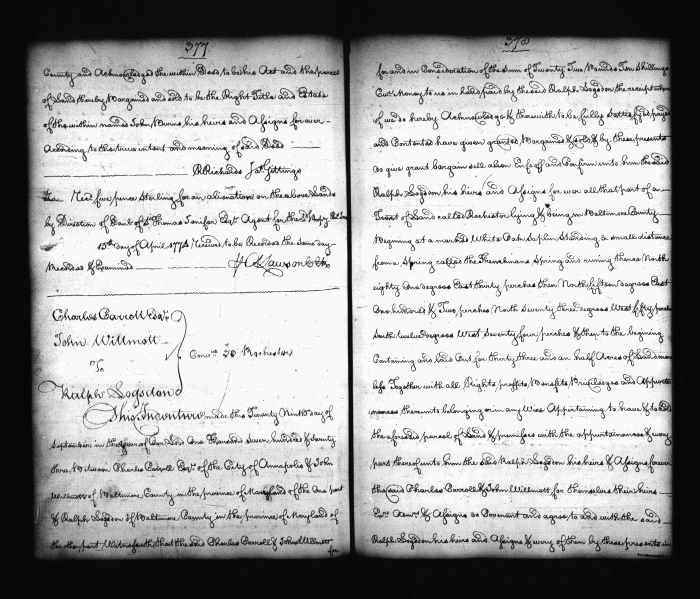 377
County and Acknowledged the within Deed to be his Act and the parcel
of Land thereby Bargained and sold to be the Right Title and Estate
of the within named John Burns his heirs and Assigns forever
According to the true intent and meaning of said Deed
R Richards Js. Gittings
Recd. five pence Sterling for an alienation on the above Land
by Direction of Danl. of St. Thomas Jenifer Esqr. Agent for the
15th day of April 1774 Received to be Recorded the same day
Recorded & Examined Lawson Clk
Charles Carroll Esqr.
John Willmott
To
Ralph Logsdon
Conve. Rochester
This Indenture made this Twenty Ninth day of
September in the Year of Our Lord One Thousand Seven hundred & Seventy
three Between Charles Carroll Esqr. of the City of Annapolis & John
Willmott of Baltimore County in the province of Maryland of the One part
& Ralph Logsdon of Baltimore County in the province of Maryland of
the other part Witnesseth that the said Charles Carroll & John Willmott
for
378
for and in Consideration of the Sum of Twenty Two Pounds Ten Shillings
Curt. Money to us in hand paid by the said Ralph Logsdon the receipt
of we do hereby Acknowledge & therewith to be fully Satisfied paid
and Contented have given granted Bargained & sold & by these presents
do give grant bargain sell alien Enfeoff and Confirm unto him the said
Ralph Logsdon his heirs and Assigns for ever all that part of a
Tract of Land called Rochester lying & being in Baltimore County
Begining at a marked White Oak Saplin Standing a small distance
from a Spring called the Spring and runing thence North
eighty One degrees East thirty perches then North fifteen degrees East
One hundred & Two perches North Seventy three degrees West fifty perches
South twelve degrees West Seventy four perches & then to the begining
Containing and laid Out for thirty three and an half Acres of Land more
less Together with all Rights profits Benefits Priviledges and Appurte
nances thereunto belonging or in any Wise Appertaining to have & to hold
the aforesaid parcel of Land & premises with the appurtenances & every
part thereof unto him the said Ralph Logsdon his heirs & Assigns forever
the said Charles Carroll & John Willmott for themselves their heirs
Exrs. Admrs. & Assigns do Covenant and agree to and with the said
Ralph Logsdon his heirs and Assigns & every of them by these presents